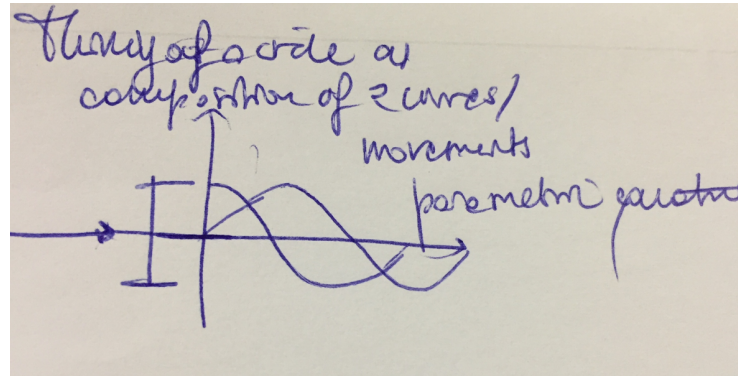 Thinking of a circle as
composition of 2 curves/
movements
parametric equation